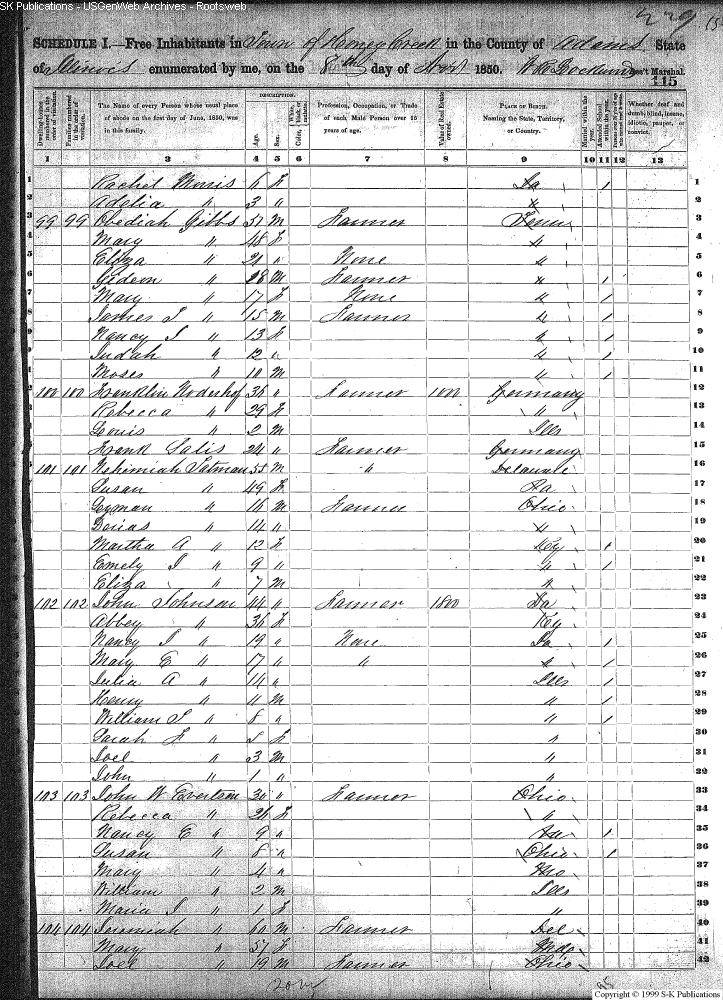 SK Publications - USGenWeb Archives - Rootsweb
229
SCHEDULE I.—Free Inhabitants in Town of Honey Creek in the County of Adams State
of Illinois enumerated by me, on the 8th day of Novr 1850. Ass't Marshal.
115
Dwelling-houses numbered in the order of visitation.
Families numbered in the order of visitation.
The Name of every Person whose usual place of abode on the first day of June, 1850, was in this family.
DESCRIPTION.
Age.
Sex.
Color, White, black, or mulatto.
Profession, Occupation, or Trade of each Male Person over 15 years of age.
Value of Real Estate owned.
PLACE OF BIRTH. Naming the State, Territory, or Country.
Married within the year.
Attended School within the year.
Whether deaf and dumb, blind, insane, idiotic, pauper, or convict.
1 2 3 4 5 6 7 8 9 10 11 12 13
1 Rachel Norris 6 F 1
2 Adelia " 3 " " 2
3 99 99 Obediah Gibbs M Farmer Tenn 3
4 Mary " 48 F " 4
5 Eliza " 21 " None " 5
6 Gideon " 18 M Farmer " 6
7 Mary " 17 F None " 7
8 James " 15 M Farmer " 8
9 Nancy " 13 F " 9
10 Judah " 12 " " 10
11 Moses " 10 M " 11
12 100 100 Franklin 36 " Farmer 1000 Germany 12
13 Rebecca " 29 F " 13
14 Louis " 2 M Ills 14
15 Frank 24 " Farmer Germany 15
16 101 101 Nehemiah Tatman 55 M " Delaware 16
17 Susan " 49 F Pa 17
18 Lyman " 16 M Farmer Ohio 18
19 " 14 " " 19
20 Martha A " 12 F Ky 20
21 Emely J " 9 " " 21
22 Eliza " 7 M " 22
23 102 102 John Johnson 44 " Farmer 1800 23
24 Abbey " 36 F Ky 24
25 Nancy J " 19 " None 25
26 Mary E " 17 " " " 26
27 Julia A " 14 " Ills 27
28 Henry " 11 M " 28
29 William " 8 " " 29
30 Sarah F " 5 F " 30
31 Joel " 3 M " 31
32 John " 1 " " 32
33 103 103 John W Evertson 30 " Farmer Ohio 33
34 Rebecca " 26 F " 34
35 Nancy E " 9 " 35
36 Susan " 8 " Ohio 36
37 Mary " 4 " Mo 37
38 William " 2 M Ills 38
39 Maria J " 1 F " 39
40 104 104 Jeremiah " 60 M Farmer Del 40
41 Mary " 57 F Md 41
42 Joel " 19 M Farmer Ohio 42
Copyright © 1999 S-K Publications